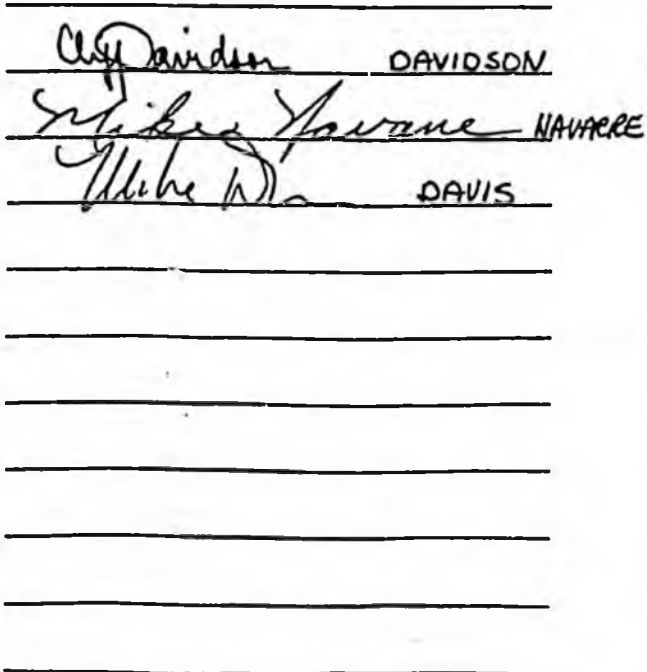 Cliff Davidson DAVIDSON
Mike Navarre NAVARRE
Mike Davis DAVIS